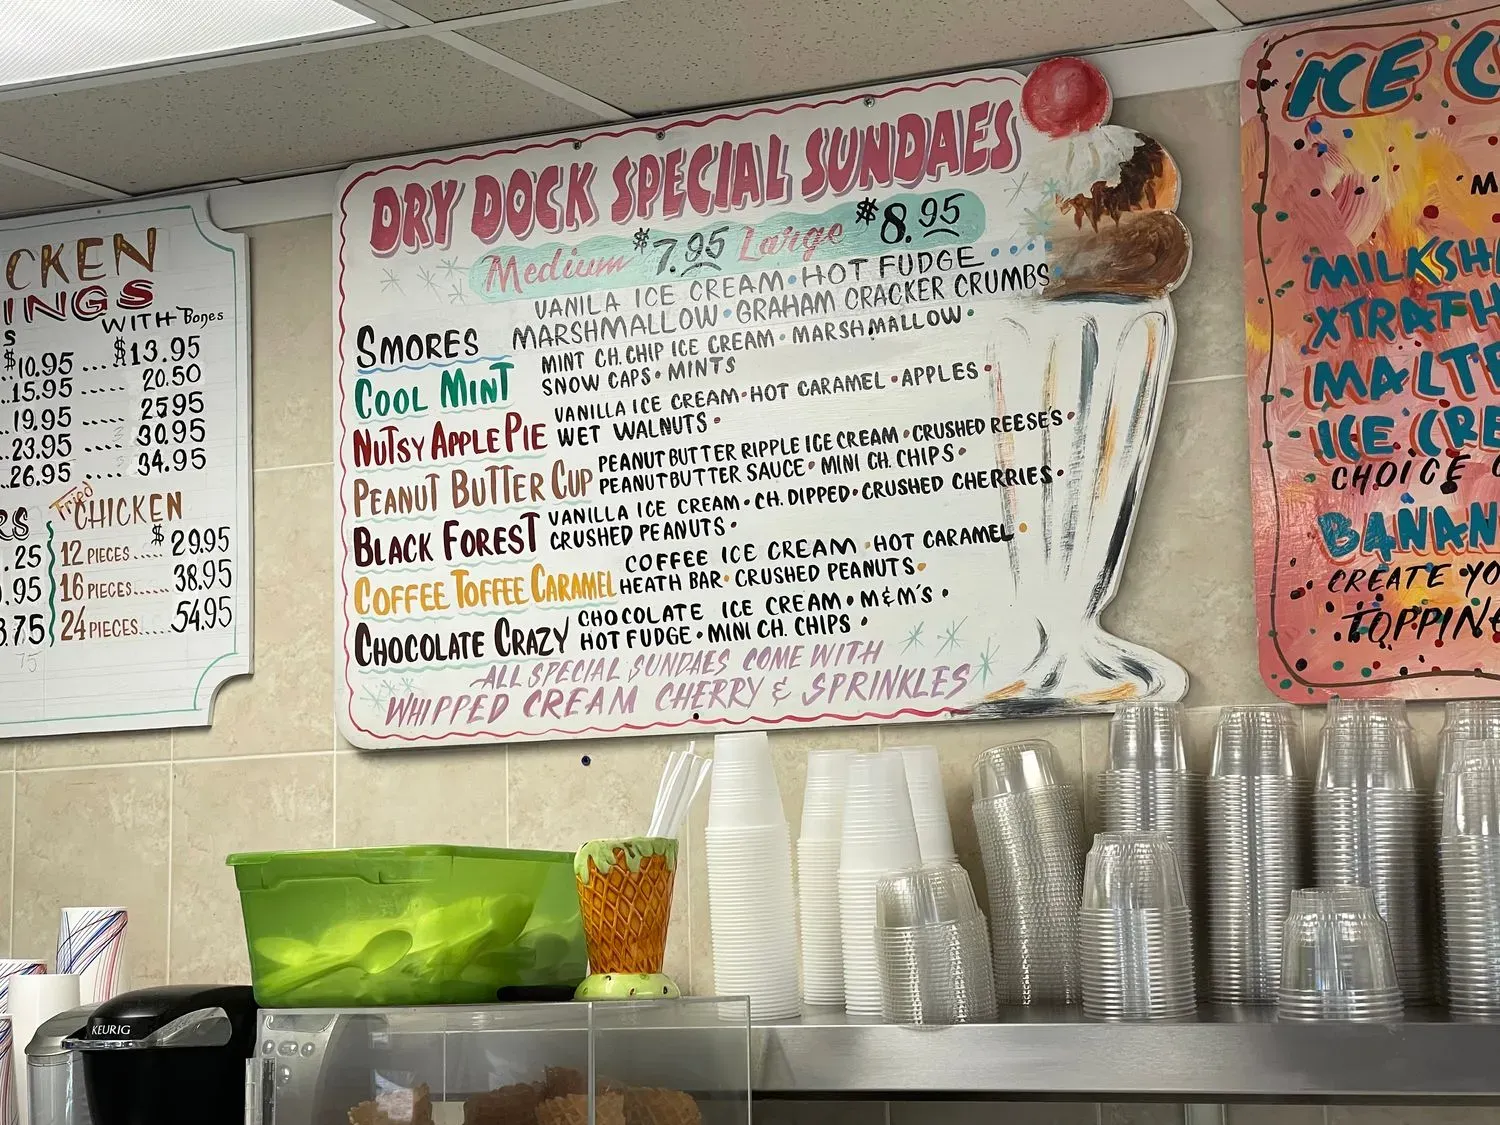 CKEN
INGS
WITH Bones
S
$10.95 .... $13.95
..15.95 .... 20.50
..19.95 .... 25.95
..23.95 .... 30.95
..26.95 .... 34.95
Fried
CHICKEN
RS
12 PIECES... $29.95
16 PIECES...... 38.95
24 PIECES..... 54.95
.25
.95
3.75
75
DRY DOCK SPECIAL SUNDAES
Medium $7.95 Large $8.95
VANILA ICE CREAM • HOT FUDGE
SMORES MARSHMALLOW • GRAHAM CRACKER CRUMBS
COOL MINT MINT CH. CHIP ICE CREAM • MARSHMALLOW •
SNOW CAPS • MINTS
NUTSY APPLE PIE VANILLA ICE CREAM • HOT CARAMEL • APPLES •
WET WALNUTS •
PEANUT BUTTER CUP PEANUT BUTTER RIPPLE ICE CREAM • CRUSHED REESE'S •
PEANUT BUTTER SAUCE • MINI CH. CHIPS •
BLACK FOREST VANILLA ICE CREAM • CH. DIPPED • CRUSHED CHERRIES •
CRUSHED PEANUTS •
COFFEE TOFFEE CARAMEL COFFEE ICE CREAM • HOT CARAMEL •
HEATH BAR • CRUSHED PEANUTS •
CHOCOLATE CRAZY CHOCOLATE ICE CREAM • M&M'S •
HOT FUDGE • MINI CH. CHIPS •
ALL SPECIAL SUNDAES COME WITH
WHIPPED CREAM CHERRY & SPRINKLES
ICE C
M
MILKSH
XTRA TH
MALTE
ICE CRE
CHOICE
BANAN
CREATE YO
TOPPING
KEURIG